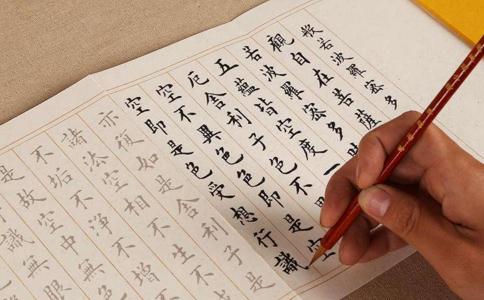 般若波羅密多
觀自在菩薩
若波羅密多時
五蘊皆空度一
厄舍利子色不
空不異色色即是空
空即是色受想行識
亦復如是舍利子是
諸法空相不生不
不垢不淨不增
是故空中無
識無眼